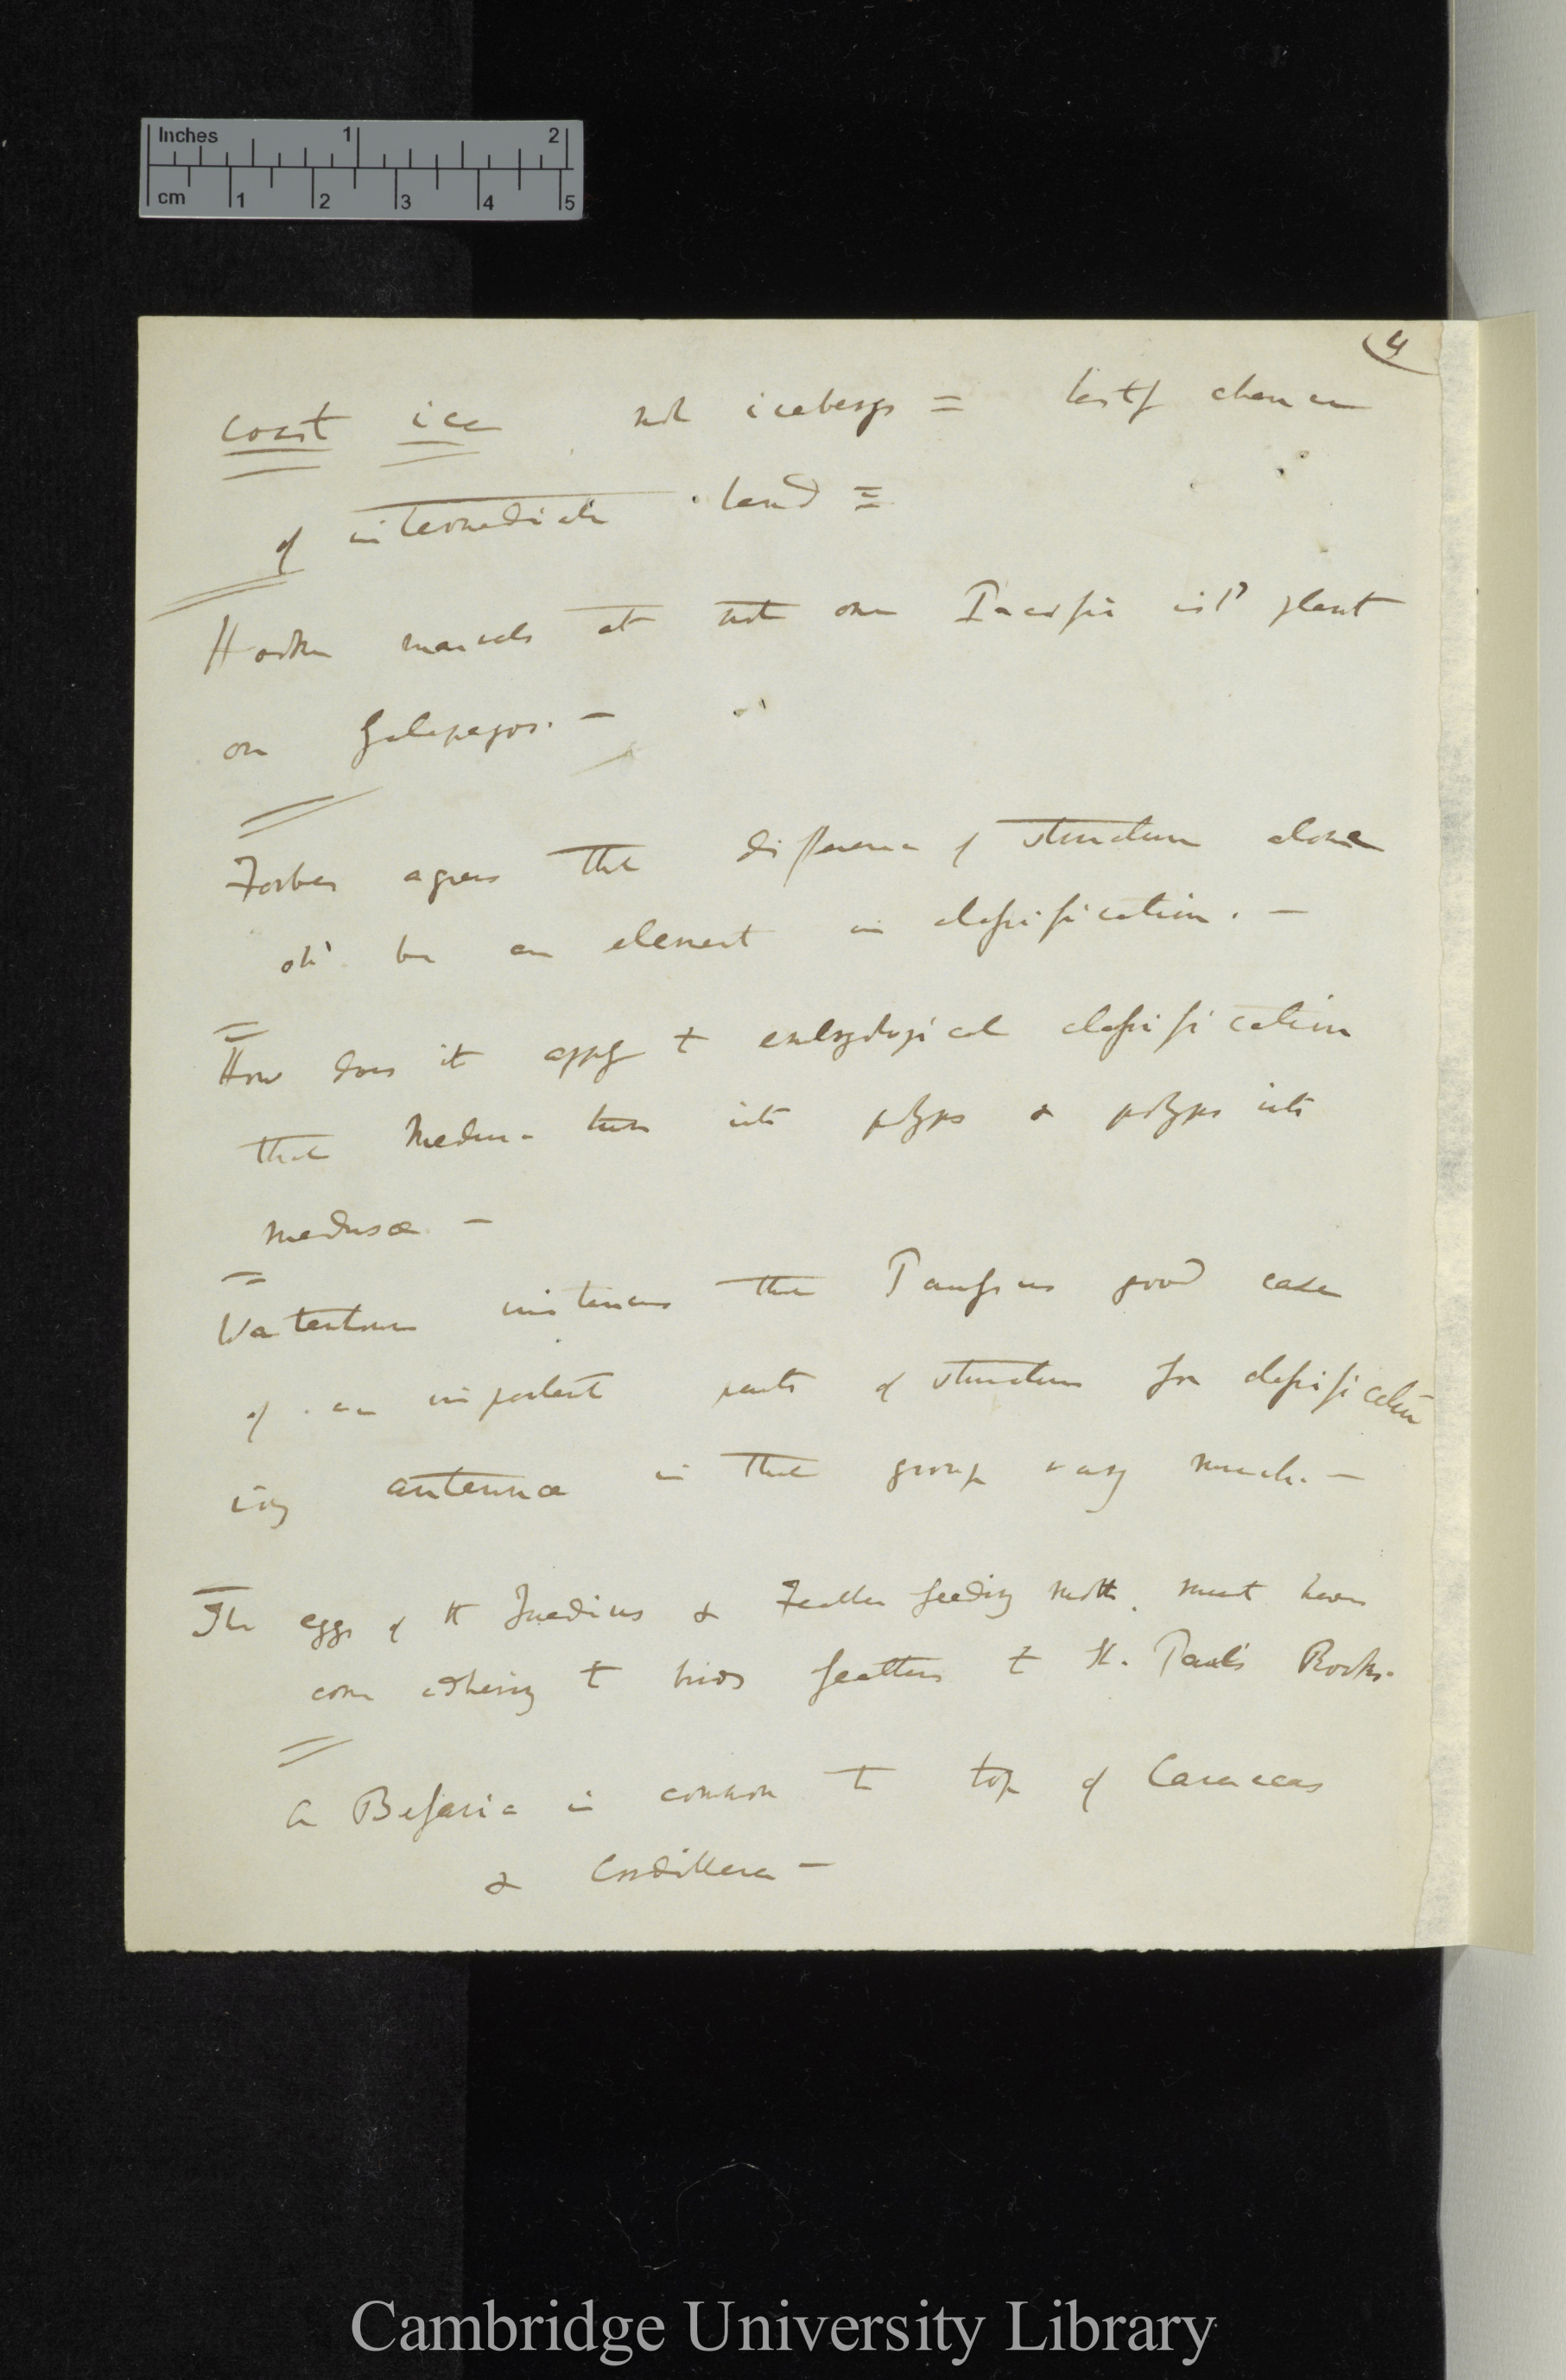 Inches 1 2
cm 1 2 3 4 5
4
coast ice not icebergs = lastly chance
of intermediate land =
Hooker marvels at not one Pacific isld plant
on Galapagos. —
Forbes agrees that difference of structure alone
ought be an element in classification. —
How does it apply to embryological classification
that Medusa turn into polyps & polyps into
medusæ —
Waterhouse instances the Paussus good case
of an important parts of structure for classification
ing antennæ in that group vary much. —
The eggs of the & Feather feeding moth must have
come adhering to birds feathers to St. Paul's Rocks.
a Befaria is common to top of Caraccas
& Cordillera —
Cambridge University Library